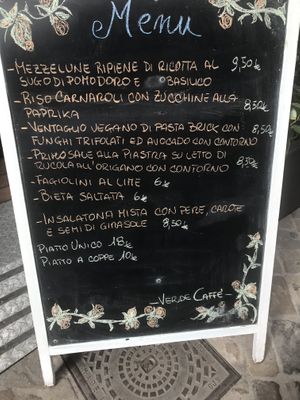 Menu
-MEZZELUNE RIPIENE DI RICOTTA AL 9,50€
SUGO DI POMODORO E BASILICO
-RISO CARNAROLI CON ZUCCHINE ALLA 8,50€
PAPRIKA
-VENTAGLIO VEGANO DI PASTA BRICK CON 8,50€
FUNGHI TRIFOLATI ED AVOCADO CON CONTORNO
-PRIMOSALE ALLA PIASTRA SU LETTO DI 8,50€
RUCOLA ALL'ORIGANO CON CONTORNO
-FAGIOLINI AL LIME 6€
-BIETA SALTATA 6€
-INSALATONA MISTA CON PERE, CAROTE
E SEMI DI GIRASOLE 8,50€
PIATTO UNICO 18€
PIATTO A COPPE 10€
-VERDE CAFFÈ-